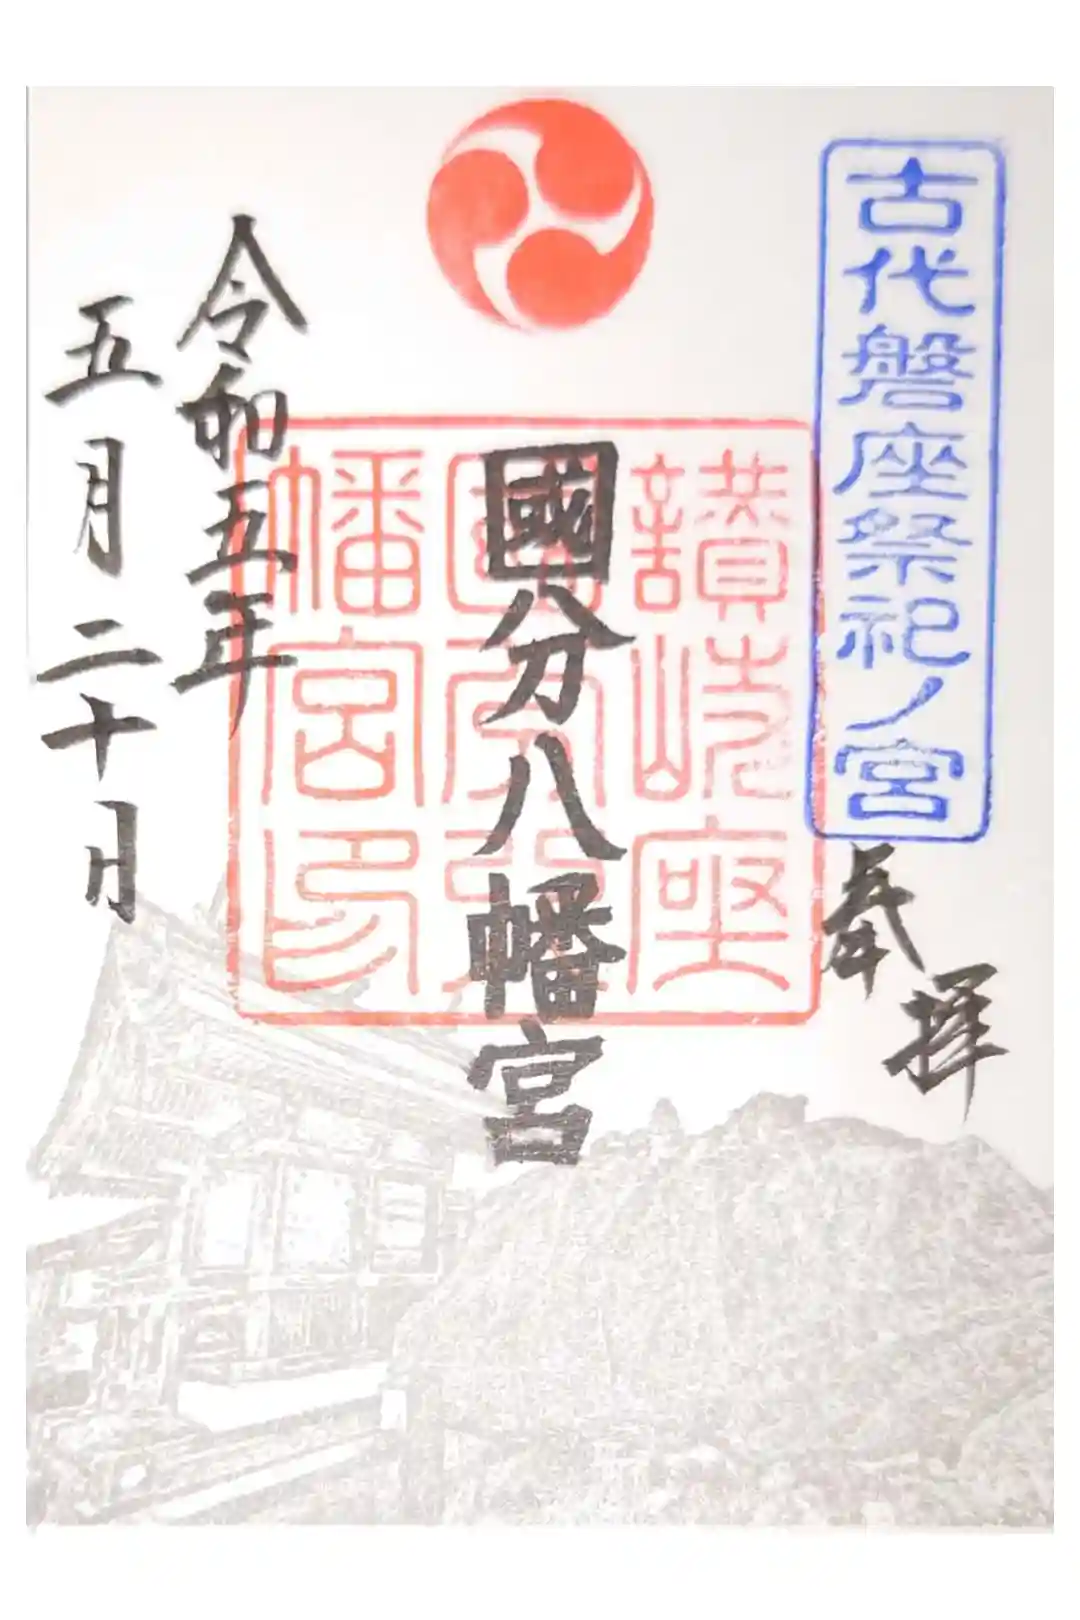 古代磐座祭祀ノ宮
奉拝
讃岐座
國分八
幡宮印
國分八幡宮
令和五年
五月二十日